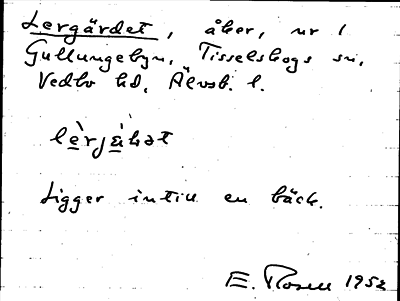 Lergärdet, åker, nr 1
Gullungebyn, Tisselskogs sn,
Vedbo hd, Älvsb. l.
Ligger intill en bäck.
E. Rosell 1952